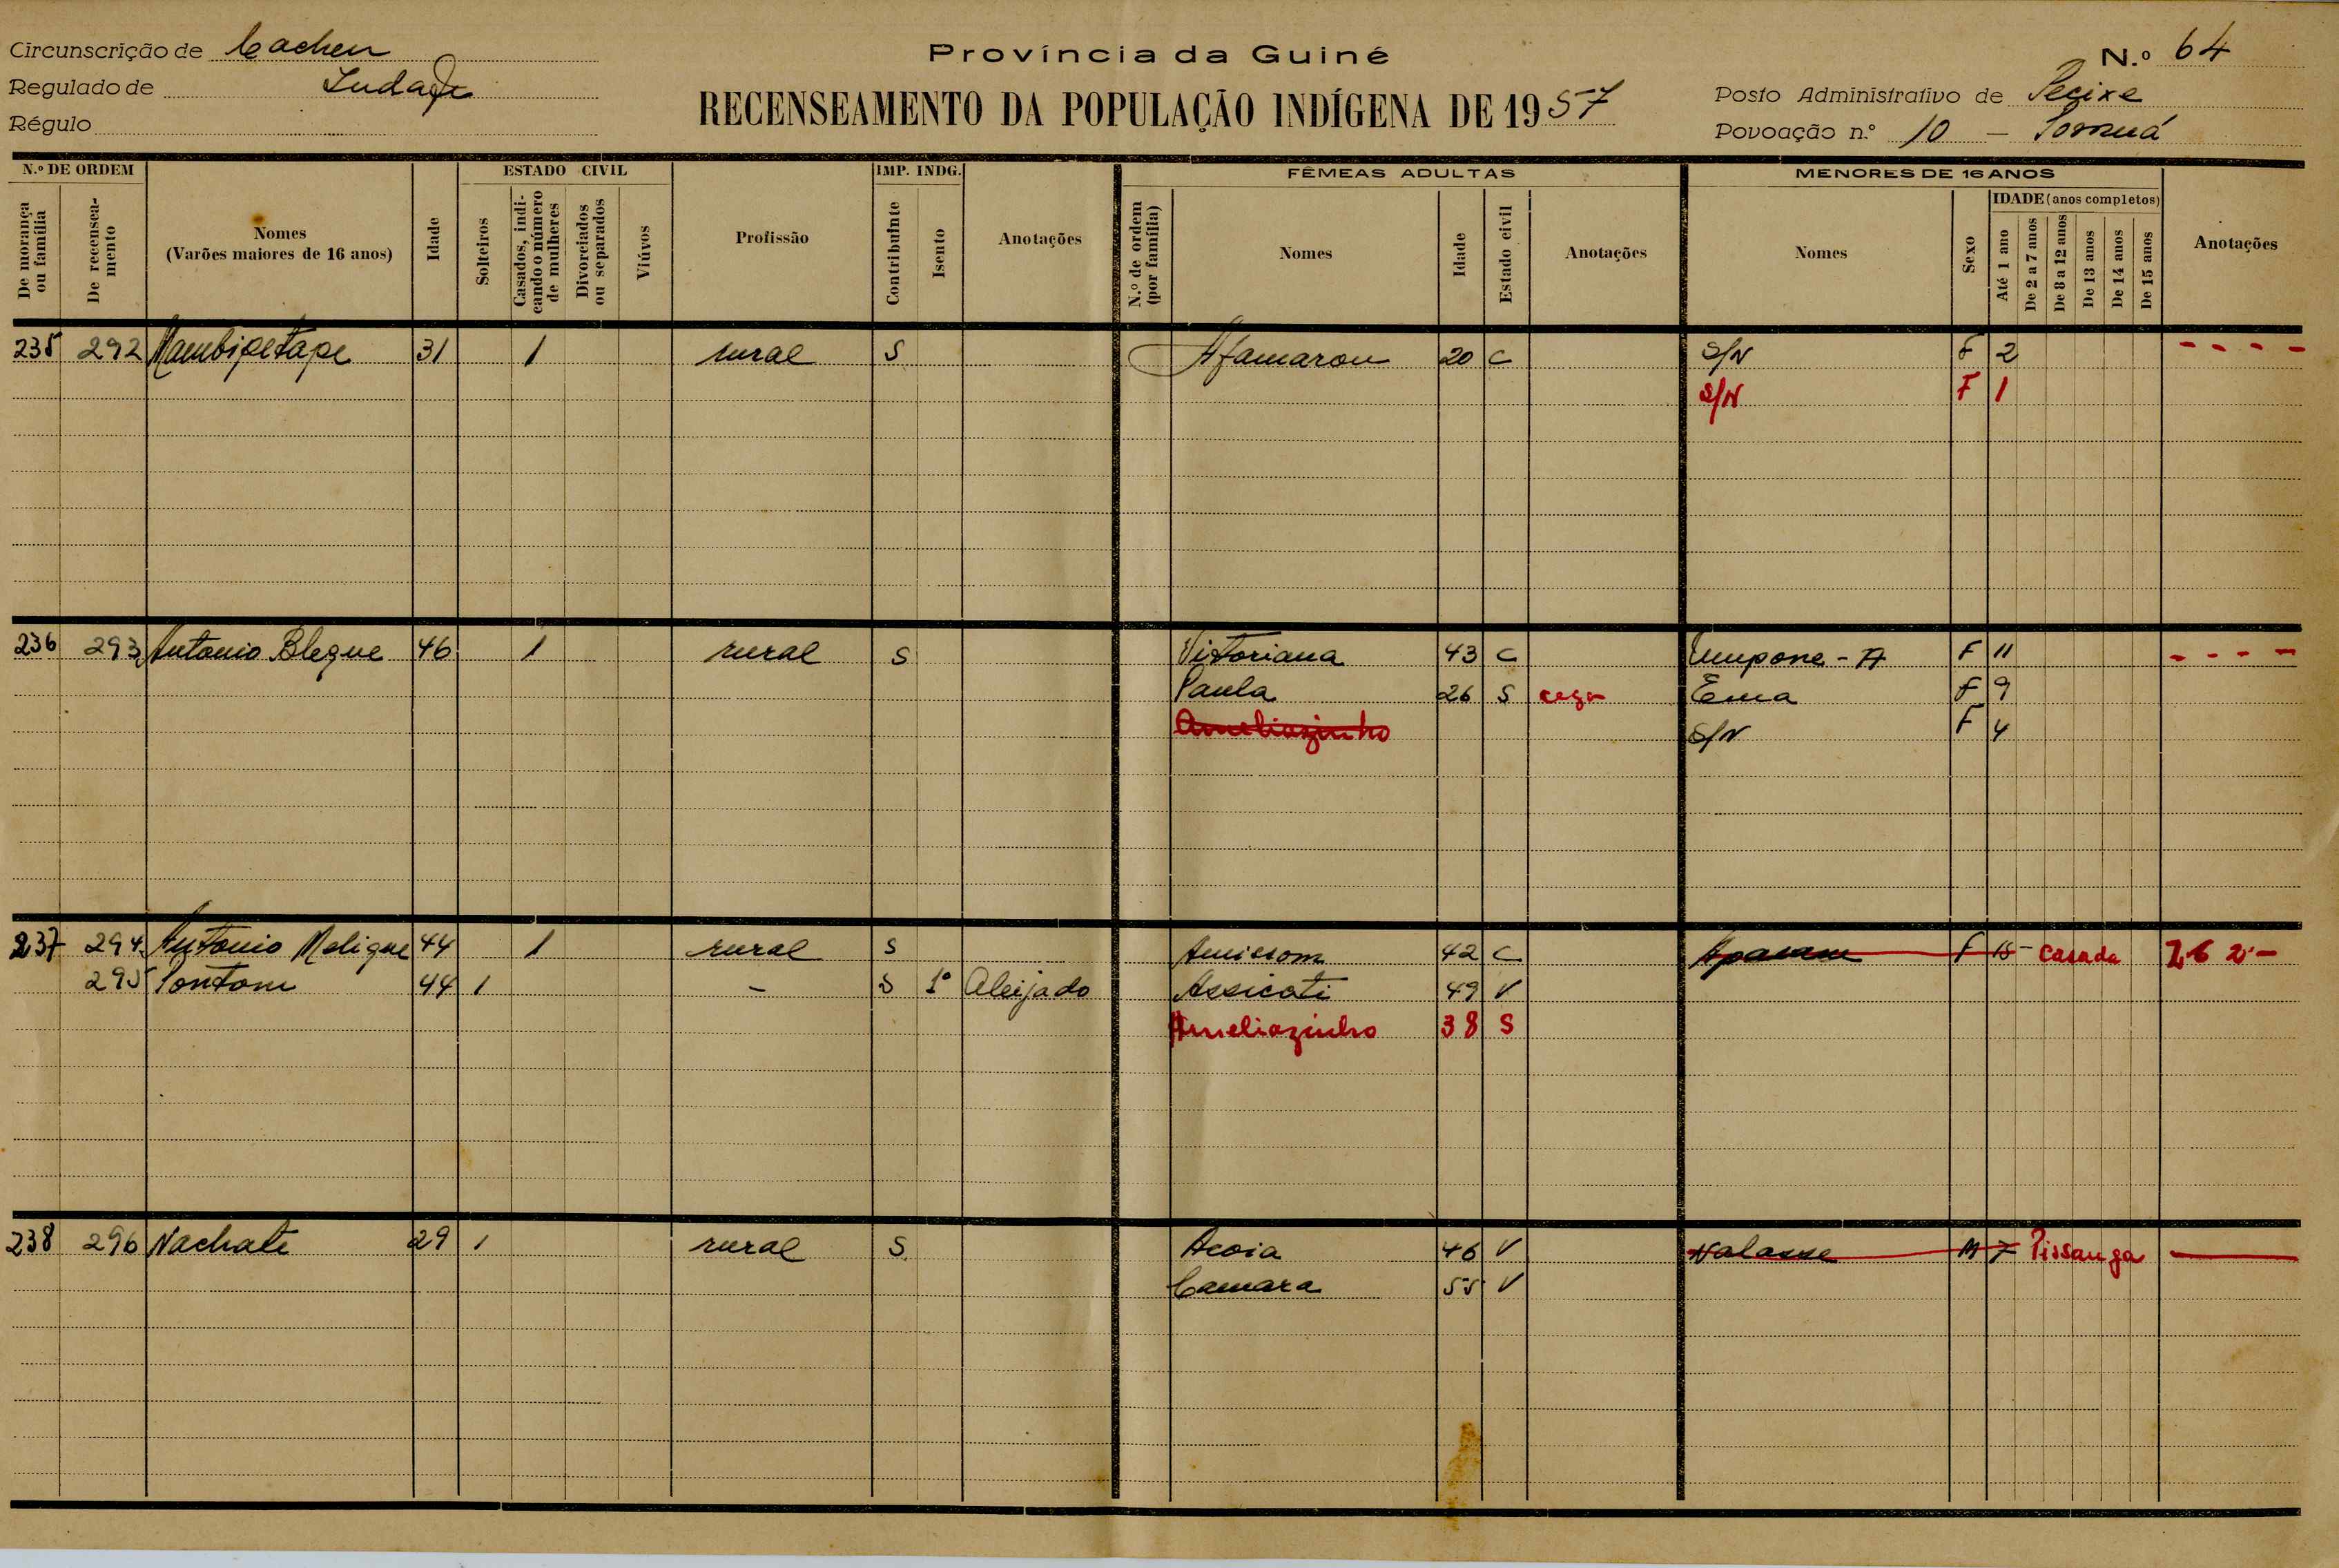 Circunscrição de Cacheu
Regulado de
Régulo
Província da Guiné
RECENSEAMENTO DA POPULAÇÃO INDÍGENA DE 1957
N.º 64
Posto Administrativo de Pecixe
Povoação n.º 10 –
N.º DE ORDEM
De morança ou família
De recensea-mento
Nomes
(Varões maiores de 16 anos)
Idade
ESTADO CIVIL
Solteiros
Casados, indi-cando o número de mulheres
Divorciados ou separados
Viúvos
Profissão
IMP. INDG.
Contribuinte
Isento
Anotações
FÊMEAS ADULTAS
N.º de ordem (por família)
Nomes
Idade
Estado civil
Anotações
MENORES DE 16 ANOS
Nomes
Sexo
IDADE (anos completos)
Até 1 ano
De 2 a 7 anos
De 8 a 12 anos
De 13 anos
De 14 anos
De 15 anos
Anotações
235 292 Mambipetape 31 1 rural S Afamarou 20 C S/N F 2 - - - -
S/N F 1
236 293 Antonio Bleque 46 1 rural S Victoriana 43 C Empone - A F 11 - - - -
Paula 26 S cega Ema F 9
Ameliazinho S/N F 4
237 294 Antonio Melique 44 1 rural S Amissom 42 C F 15 - casada
295 Pontom 44 1 – S 1º Aleijado Assicati 49 V
Ameliazinho 38 S
238 296 Nachate 29 1 rural S Acoia 46 V Nalasse M 7 Pissanga
Camara 55 V